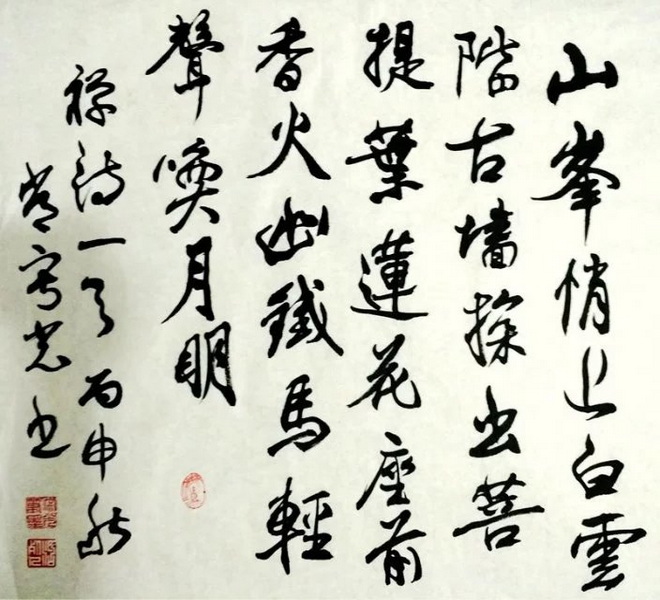 山峯悄上白雲
階古墙探出菩
提葉蓮花座前
香火幽鐵馬輕
聲喚月明
禅詩一首丙申秋
光书